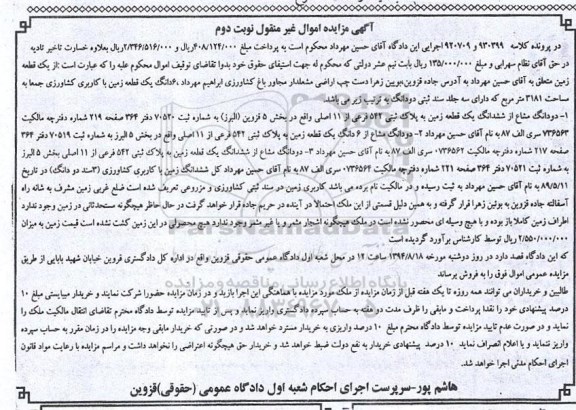 آگهی مزایده اموال غیر منقول نوبت دوم
در پرونده کلاسه ۹۳۰۳۹۹ و ۹۲۰۷۰۹ اجرایی این دادگاه آقای حسین مهرداد محکوم است به پرداخت مبلغ ۴۰۸/۱۲۴/۰۰۰ریال و ۲/۳۴۶/۵۱۶/۰۰۰ریال بعلاوه خسارت تاخیر تادیه
در حق آقای نظام سهرابی و مبلغ ۱۳۵/۰۰۰/۰۰۰ ریال بابت نیم عشر دولتی که محکوم له جهت استیفای حقوق خود بدوا تقاضای توقیف اموال محکوم علیه را که عبارت است :از یک قطعه
زمین متعلق به آقای حسین مهرداد به آدرس جاده قزوین،بویین زهرا دست چپ اراضی مشعلدار مجاور باغ کشاورزی ابراهیم مهرداد ،۶دانگ یک قطعه زمین با کاربری کشاورزی جمعا به
مساحت ۳۱۸۱ متر مربع که دارای سه جلد سند ثبتی دودانگ به ترتیب زیر می باشد
۱- دودانگ مشاع از ششدانگ یک قطعه زمین به پلاک ثبتی ۵۴۲ فرعی از ۱۱ اصلی واقع در بخش ۵ قزوین (البرز) به شماره ثبت ۷۰۵۲۰ دفتر ۳۶۴ صفحه ۲۱۹ شماره دفترچه مالکیت
۷۳۶۵۶۳ سری الف ۸۷ به نام آقای حسین مهرداد ۲- دودانگ مشاع از ۶ دانگ یک قطعه زمین به پلاک ثبتی ۵۴۲ فرعی از ۱۱ اصلی واقع در بخش ۵ البرز به شماره ثبت ۷۰۵۱۹ دفتر ۳۶۴
صفحه ۲۱۷ شماره دفترچه مالکیت ۰۷۳۶۵۶۲ سری الف ۸۷ به نام آقای حسین مهرداد ۳- دودانگ مشاع از ششدانگ یک قطعه زمین به پلاک ثبتی ۵۴۲ فرعی از ۱۱ اصلی بخش ۵ البرز
به شماره ثبت ۷۰۵۲۱ دفتر ۳۶۴ صفحه ۲۲۱ شماره دفترچه مالکیت ۰۷۳۶۵۶۴ سری الف ۸۷ به نام آقای حسین مهرداد کل ششدانگ زمین با کاربری کشاورزی (۳سند دو دانگ) در تاریخ
۸۹/۵/۱۱ به نام آقای حسین مهرداد به ثبت رسیده و در مالکیت نام برده می باشد کاربری زمین در سند ثبتی کشاورزی و مزروعی تعریف شده است ضلع غربی زمین مشرف به شانه راه
آسفالته جاده قزوین به بوئین زهرا قرار گرفته و به همین دلیل قسمتی از این ملک احتمالا در آینده در حریم جاده قرار خواهد گرفت در حال حاظر هیچگونه مستحدثاتی در زمین وجود ندارد
اطراف زمین کاملا باز بوده و با هیچ وسیله ای محصور نشده است در ملک هیچگونه اشجار مثمر و یا غیر مثمر وجود ندارد هیچ محصولی در این زمین کشت نشده است قیمت زمین به میزان
۲/۵۵۰/۰۰۰/۰۰۰ ریال توسط کارشناس برآورد گردیده است
که این دادگاه قصد دارد در روز دوشنبه مورخه ۱۳۹۴/۸/۱۸ ساعت ۱۲ در محل شعبه اول دادگاه عمومی حقوقی قزوین واقع در اداره کل دادگستری قزوین خیابان شهید بابایی از طریق
مزایده عمومی اموال فوق را به فروش برساند
طالبین و خریداران می توانند همه روزه تا یک هفته قبل از زمان مزایده از ملک مورد مزایده با هماهنگی این اجرا بازدید و در زمان مزایده حضورا شرکت نمایند و خریدار میبایستی مبلغ ۱۰
درصد پیشنهادی خود را نقدا پرداخت و مابقی را ظرف مدت دو هفته به حساب سپرده دادگستری واریز نماید و پس از تایید مزایده توسط دادگاه محترم تقاضای انتقال مالکیت ملک را
نماید و در صورت عدم تایید مزایده توسط دادگاه محترم مبلغ ۱۰ درصد واریزی به خریدار مسترد خواهد شد و در صورتی که خریدار مابقی وجه مزایده را در زمان مقرر به حساب سپرده
واریز ننماید و یا اعلام انصراف نماید ۱۰ درصد پیشنهادی خریدار به نفع دولت ضبط خواهد شد و خریدار حق هیچگونه اعتراضی را نخواهد داشت و مراسم مزایده با رعایت مواد قانون
اجرای احکام مدنی اجرا خواهد شد.
هاشم پور-سرپرست اجرای احکام شعبه اول دادگاه عمومی (حقوقی)قزوین